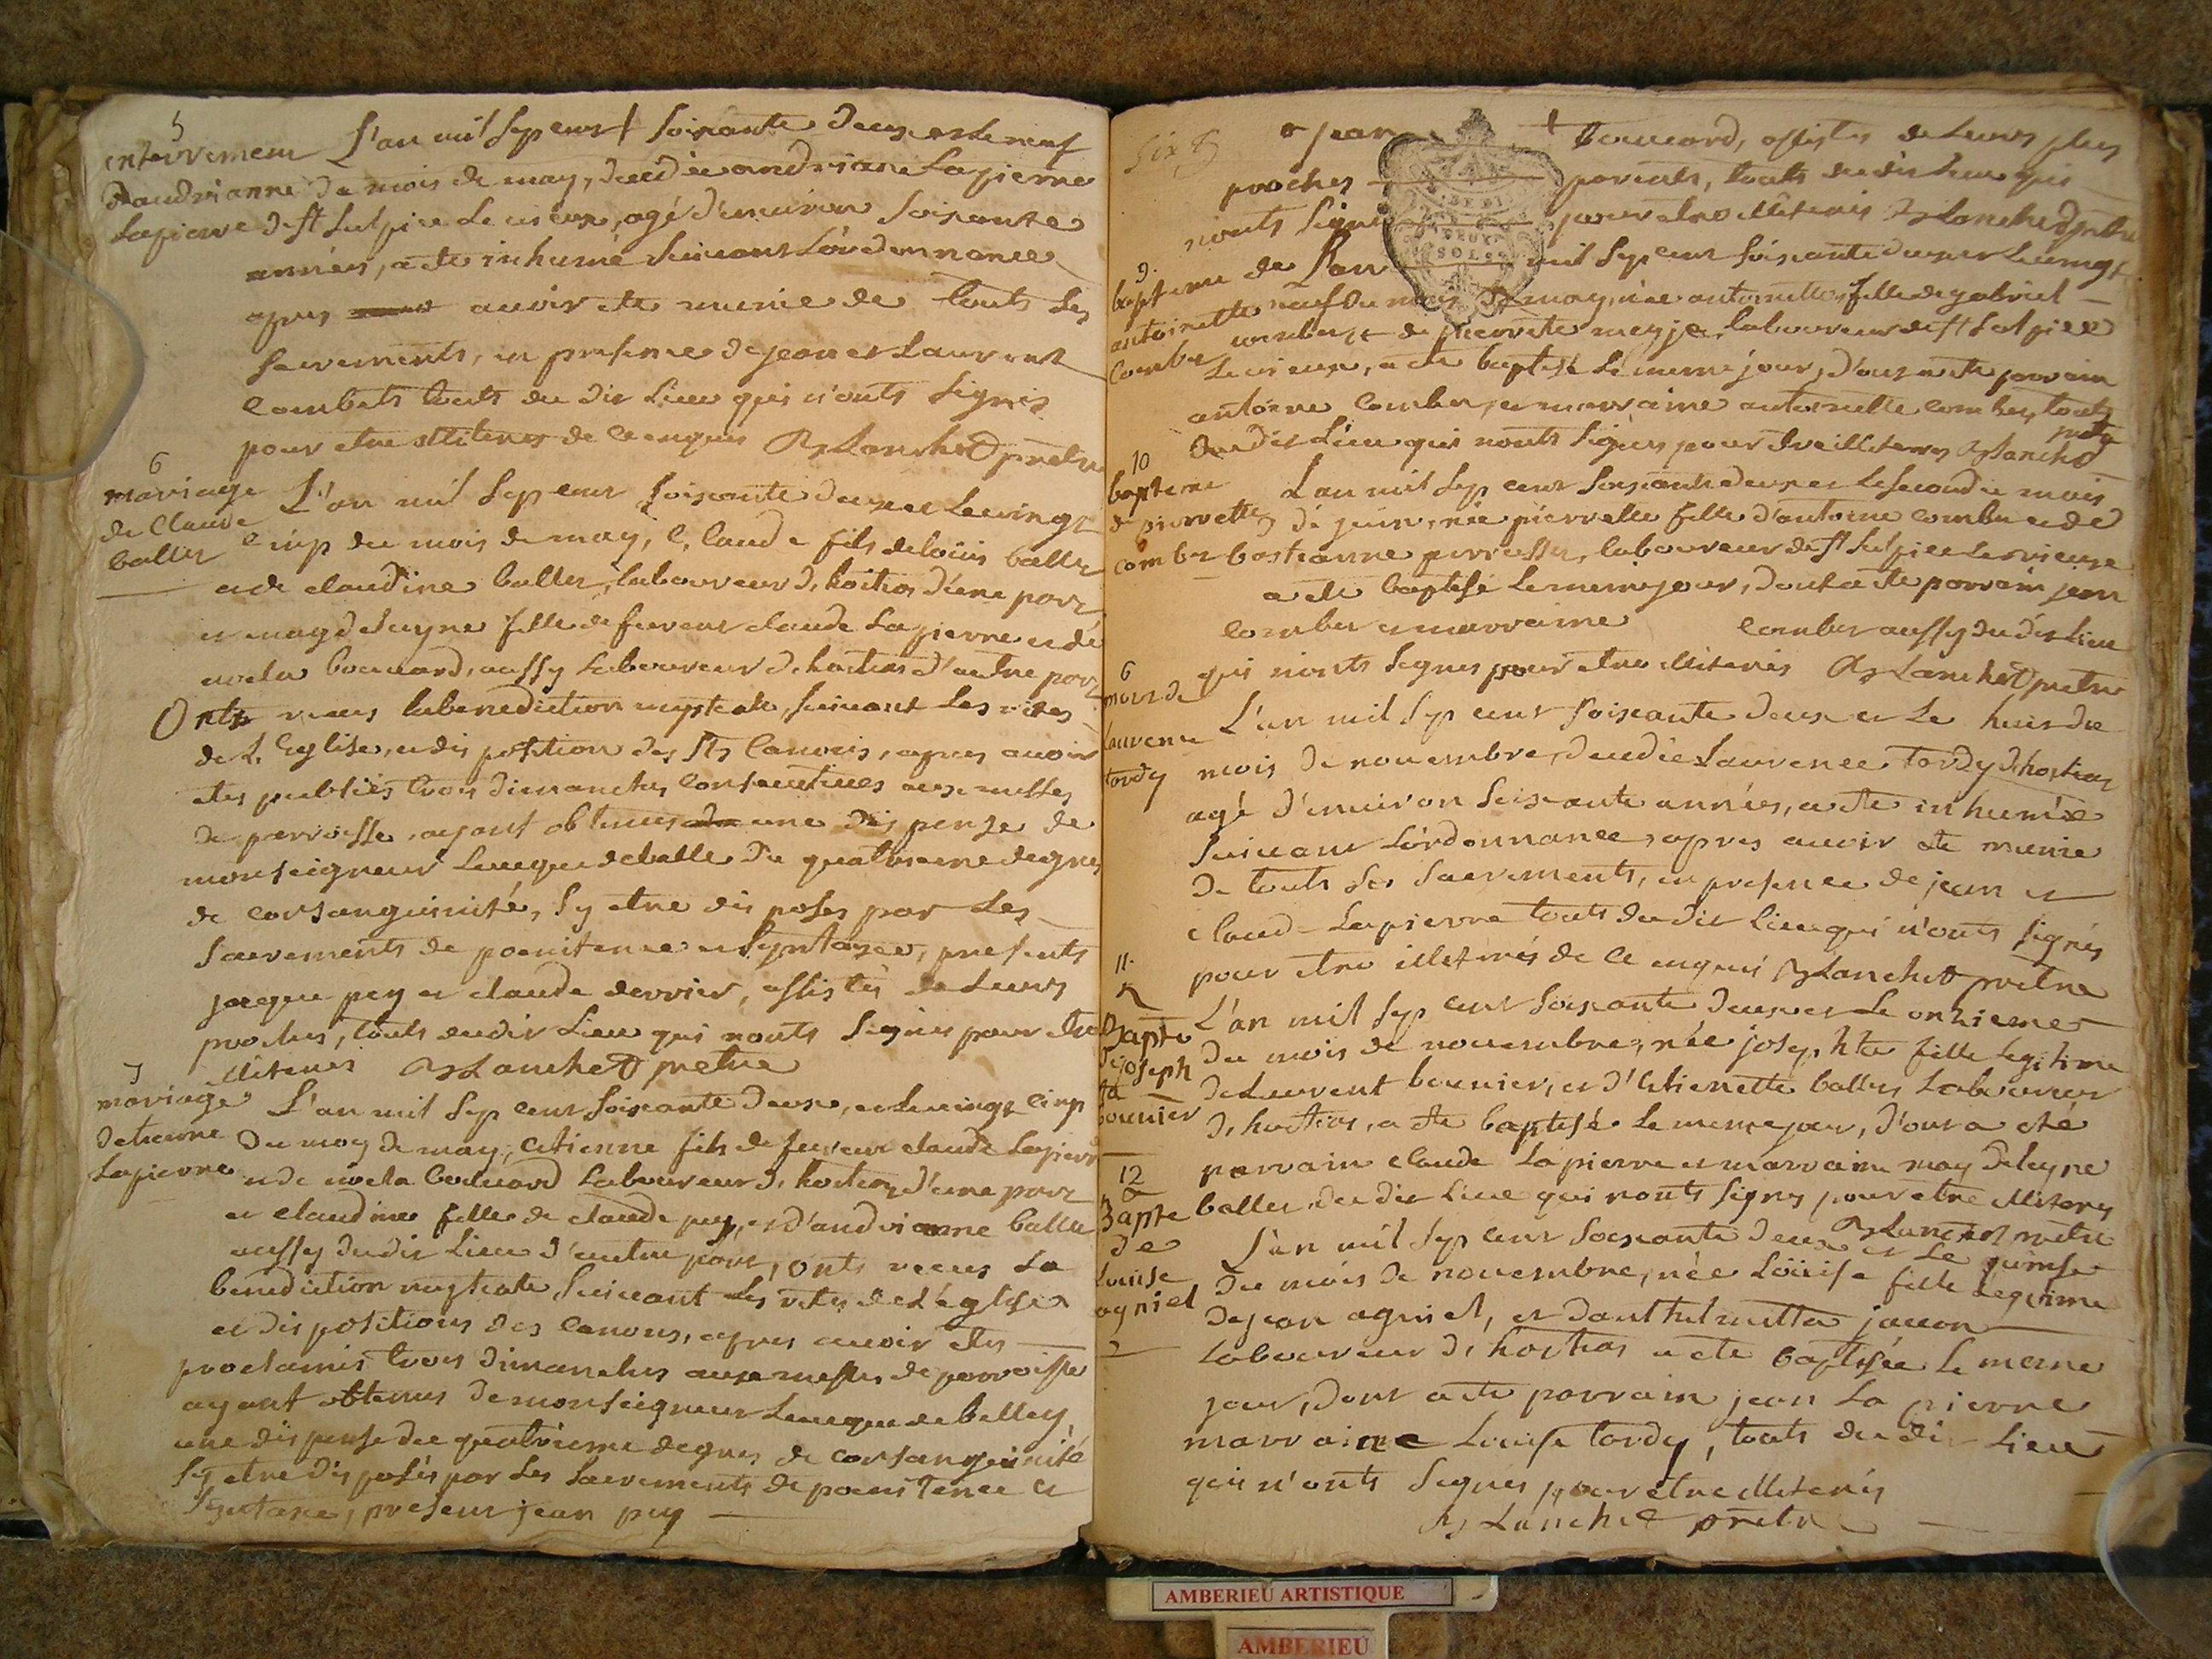 5
enterrement
d'audrianne
Lapierre
L'an mil sep cent soixante deux et le neuf
du mois de may, decedée andriane Lapierre
de st Sulpice le vieux, agé d'environ soixante
années, a ete inhumé suivant l'ordonnance
apres avoir ete munie de touts les
sacrements, en presence de jean et laurent
combets touts du dit lieu qui n'onts signés
pour etre illiteres de ce enquis Blanchet pretre
6
mariage
de Claude
ballet
L'an mil sep cent soixante deux et le vingt
cinp du mois de may, Claude fils de loüis ballet
et de claudine ballet, laboureur d'hostias d'une part
et magdeleyne fille de feu sieur claude Lapierre et de
bouuard, aussy laboureur d'hostias d'autre part
Onts receus la benediction nuptiale, suivant les rites
de L'Eglise, et disposition des Sts Canons, apres avoir
etes publiés trois dimanches consecutives aux messes
de parroisse, ayant obtenus une dispense de
monseigneur leveque de balle du quatrieme degres
de consanguinité, sy etre disposes par les
sacrements de poenitence et Syntaxe, presents
jacque pey et claude derrier, assistés de leurs
proches, touts du dit lieu qui nonts signés pour etre
illiteres Blanchet pretre
7
mariage
detienne
Lapierre
L'an mil sep cent soixante deux, et le vingt cinp
du moy de may, etienne fils de feu sieur claude Lapierre
et de bouuard laboureur d'hostias d'une part
et claudine fille de claude pey, et d'andrianne ballet
aussy du dit lieu d'autre part, onts receus la
benediction nuptiale suivant les rites de L'eglise
et dispositions des canons, apres avoir etes
proclamés trois dimanches aux messes de parroisse
ayant obtenus de monseigneur leveque de belley
une dispense du quatrieme degres de consanguinité
sy etre disposés par les sacrements de poenitence et
Syntaxe, present jean pey
six
et jean bouuard, assistes de leurs plus
proches parents, touts du dit lieu qui
nonts signé pour etre illiteris Blanchet pretre
9.
bapteme de
antoinette
Combet
L'an mil sep cent soixante deux et le vingt
neuf du mois de may, née antoinette fille de gabriel
combet et de pierrette laboureur de st Sulpice
le vieux, a ete baptisé le meme jour, d'out a ete parrain
antoine combet, et marraine antoinette combet, touts
du dit lieu qui nonts signés pour etre illiteres Blanchet
pretre
10
bapteme
de pierrette
combet
L'an mil sep cent soixante deux et le second du mois
de juin, née pierrette fille d'antoine combet et de
bastianne laboureur de st Sulpice le vieux
a ete baptisé le meme jour, dont a ete parrain jean
combet et marraine combet aussy du dit lieu
qui nonts signes pour etre illiteris Blanchet pretre
6
mort de
Laurence
tordy
L'an mil sep cent soixante deux et le huit du
mois de novembre, decedée Laurence tordy d'hostias
agé d'environ soixante années, a ete inhumée
suivant l'ordonnance, apres avoir ete munie
de touts les sacrements, en presence de jean et
claude Lapierre touts du dit lieu qui n'onts signés
pour etre illeterés de ce enquis Blanchet pretre
11.
Bapte
de joseph
ta
bounier
L'an mil sep cent soixante deux et le onzieme
du mois de novembre, née josephte fille legitime
de Laurent bounier, et d'etienette ballet laboureur
d'hostias, a ete baptisé le meme jour, d'out a eté
parrain claude Lapierre et marraine magdeleyne
ballet, du dit lieu qui nonts signes pour etre illiteres
Blanchet pretre
12
Bapte
de
Louise
agniel
L'an mil sep cent soixante deux et le quinse
du mois de novembre, née Loüise fille legitime
de jean agniel, et d'anthelmette jacon
laboureur d'hostias a ete baptisée le meme
jour, dont a ete parrain jean La pierre
marraine Louise tordy, touts du dit lieu
qui n'onts signes pour etre illiteris
Blanchet pretre
AMBERIEU ARTISTIQUE
AMBERIEU